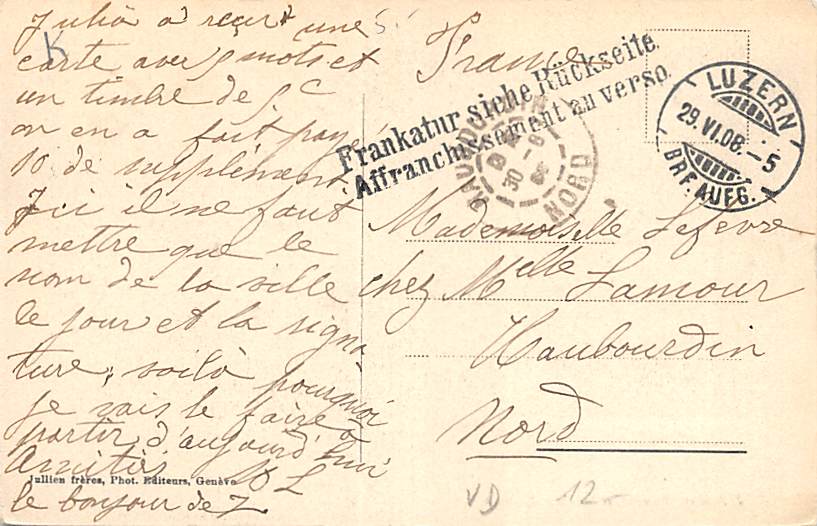 Julia a reçu une
carte avec 5 mots et
un timbre de 5 c
on en a fait payé
10 de supplément.
Ici il ne faut
mettre que le
nom de la ville
le jour et la signa-
ture, voilà pourquoi
je vais le faire
partir d'aujourd'hui
Amitiés L
le bonjour de Z
Jullien frères, Phot. Editeurs, Genève
France
Frankatur siehe Rückseite
Affranchissement au verso
LUZERN
29.VI.08.-5
BRF. AUFG.
HAUBOURDIN
30 -6
08
NORD
Mademoiselle Lefevre
chez Melle Lamour
Haubourdin
Nord
VD 12-